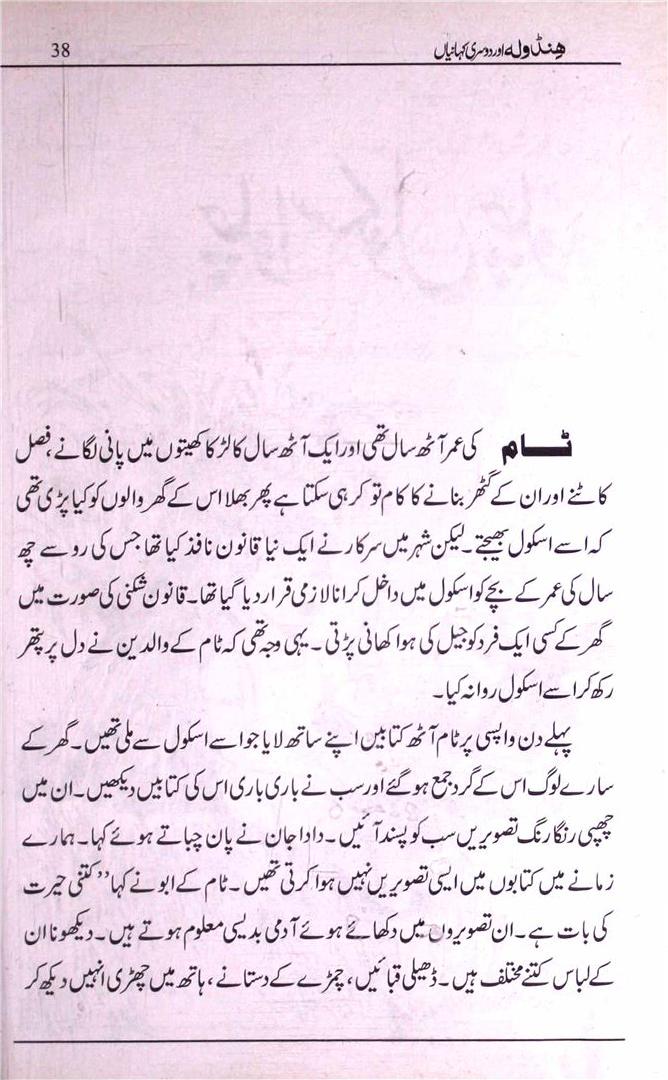 ھنڈولہ اور دوسری کہانیاں 38
ٹام کی عمر آٹھ سال تھی اور ایک آٹھ سال کا لڑکا کھیتوں میں پانی لگانے، فصل
کاٹنے اور ان کے گٹھر بنانے کا کام تو کر ہی سکتا ہے پھر بھلا اس کے گھر والوں کو کیا پڑی تھی
کہ اسے اسکول بھیجتے۔ لیکن شہر میں سرکار نے ایک نیا قانون نافذ کیا تھا جس کی رو سے چھ
سال کی عمر کے بچے کو اسکول میں داخل کرانا لازمی قرار دیا گیا تھا۔ قانون شکنی کی صورت میں
گھر کے کسی ایک فرد کو جیل کی ہوا کھانی پڑتی۔ یہی وجہ تھی کہ ٹام کے والدین نے دل پر پتھر
رکھ کر اسے اسکول روانہ کیا۔
پہلے دن واپسی پر ٹام آٹھ کتابیں اپنے ساتھ لایا جو اسے اسکول سے ملی تھیں۔ گھر کے
سارے لوگ اس کے گرد جمع ہو گئے اور سب نے باری باری اس کی کتابیں دیکھیں۔ ان میں
چھپی رنگا رنگ تصویریں سب کو پسند آئیں۔ دادا جان نے پان چباتے ہوئے کہا۔ ہمارے
زمانے میں کتابوں میں ایسی تصویریں نہیں ہوا کرتی تھیں۔ ٹام کے ابو نے کہا ’’کتنی حیرت
کی بات ہے۔ ان تصویروں میں دکھائے ہوئے آدمی بدیسی معلوم ہوتے ہیں۔ دیکھو نا ان
کے لباس کتنے مختلف ہیں۔ ڈھیلی قبائیں، چمڑے کے دستانے، ہاتھ میں چھڑی انہیں دیکھ کر